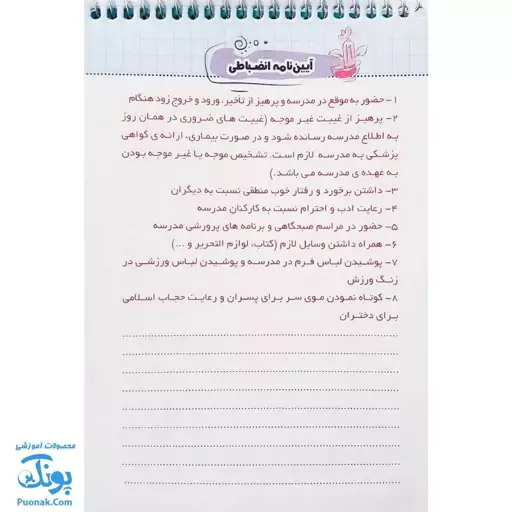 آیین‌نامه انضباطی
۱- حضور به موقع در مدرسه و پرهیز از تأخیر، ورود و خروج زود هنگام
۲- پرهیز از غیبت غیر موجه (غیبت های ضروری در همان روز
به اطلاع مدرسه رسانده شود و در صورت بیماری، ارائه ی گواهی
پزشکی به مدرسه لازم است. تشخیص موجه یا غیر موجه بودن
به عهده ی مدرسه می باشد.)
۳- داشتن برخورد و رفتار خوب منطقی نسبت به دیگران
۴- رعایت ادب و احترام نسبت به کارکنان مدرسه
۵- حضور در مراسم صبحگاهی و برنامه های پرورشی مدرسه
۶- همراه داشتن وسایل لازم (کتاب، لوازم التحریر و ...)
۷- پوشیدن لباس فرم در مدرسه و پوشیدن لباس ورزشی در
زنگ ورزش
۸- کوتاه نمودن موی سر برای پسران و رعایت حجاب اسلامی
برای دختران
محصولات آموزشی
پونک
Puonak.Com